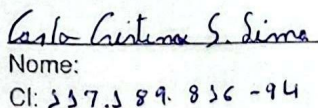 Carla Cristina S. Lima
Nome:
CI: 117.189.836-94